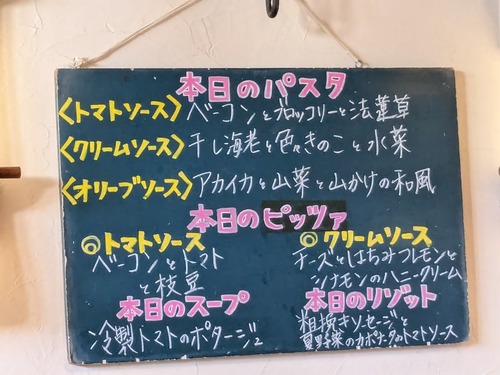 本日のパスタ
〈トマトソース〉ベーコンとブロッコリーと法蓮草
〈クリームソース〉干し海老と色々きのこと水菜
〈オリーブソース〉アカイカと山菜と山かけの和風
本日のピッツァ
◎トマトソース
ベーコンとトマト
と枝豆
◎クリームソース
チーズとはちみつレモンと
シナモンのハニークリーム
本日のスープ
冷製トマトのポタージュ
本日のリゾット
粗挽きソーセージと
夏野菜のカポナータのトマトソース